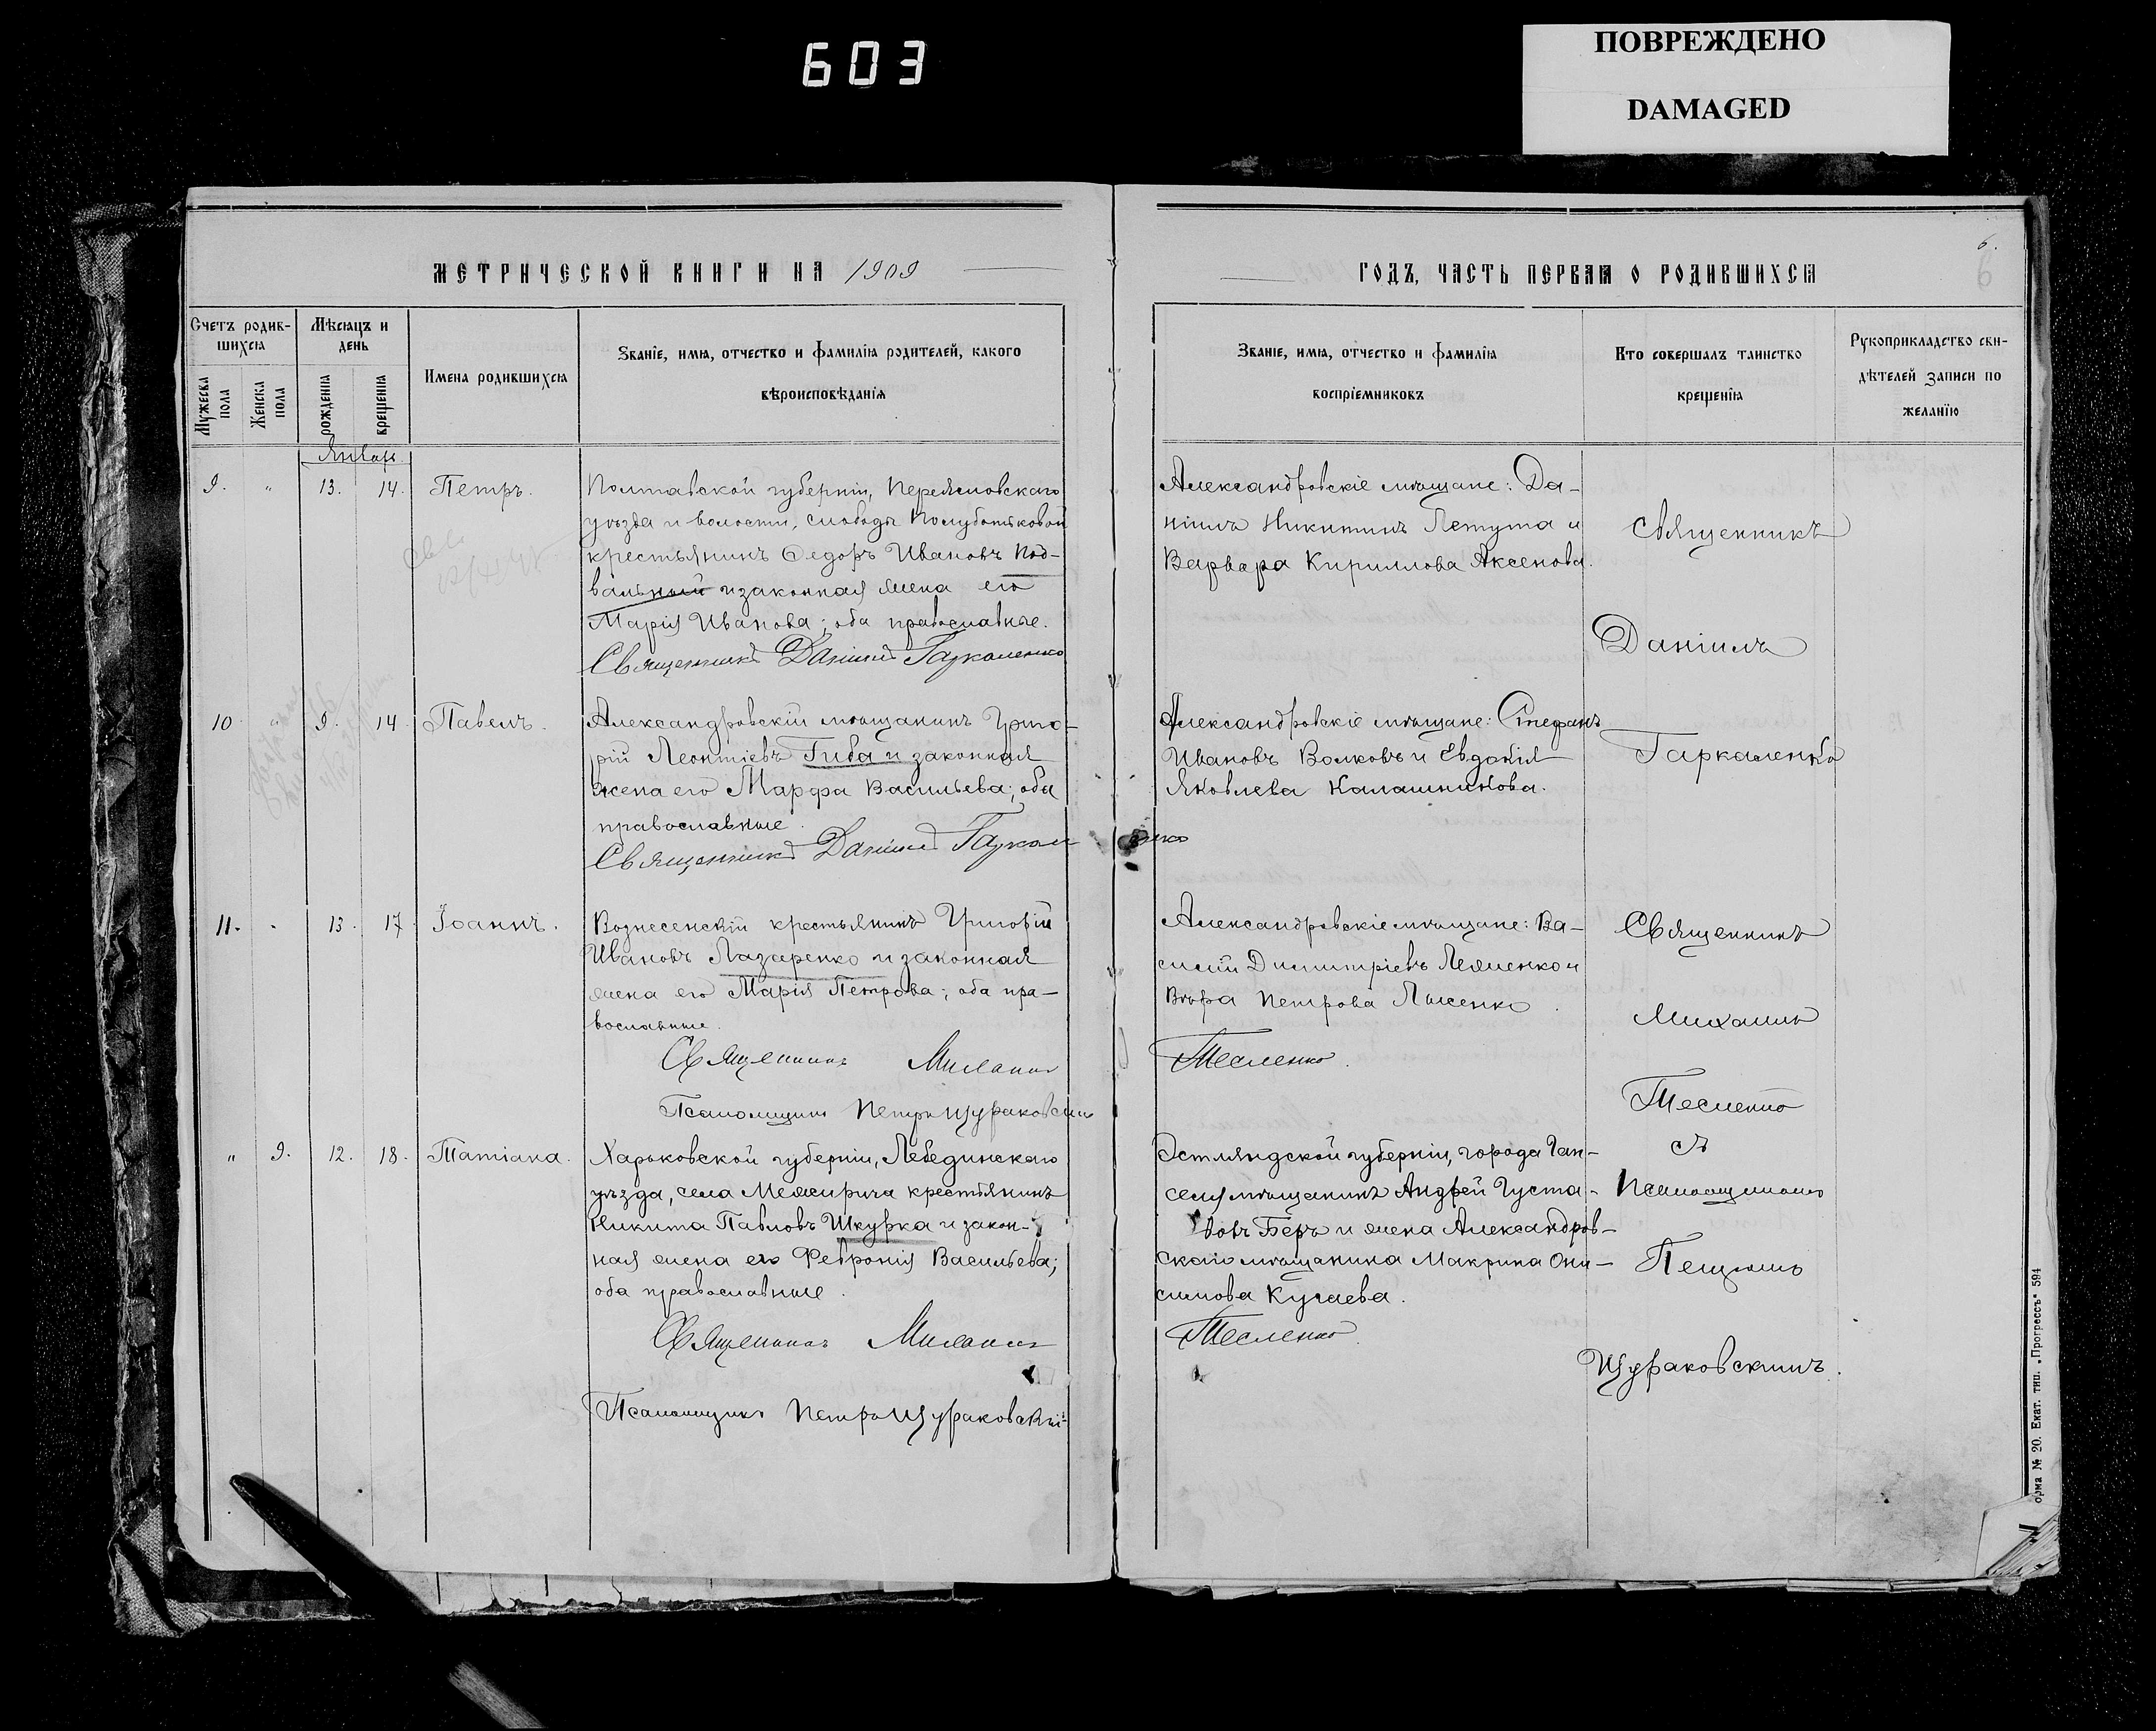 603
ПОВРЕЖДЕНО
DAMAGED
МЕТРИЧЕСКОЙ КНИГИ НА 1909
Счетъ родив-
шихся
Мѣсяцъ и
день
Имена родившихся
Званіе, имя, отчество и фамилія родителей, какого
вѣроисповѣданія
Мужеска
пола
Женска
пола
рожденія
крещенія
Январ.
9. " 13. 14. Петръ.
Полтавской губерніи, Переяславскаго
уѣзда и волости, слободы Полуботьковой
крестьянинъ Ѳедоръ Ивановъ Под-
вальный и законная жена его
Марія Иванова; оба православные.
Священникъ Даніилъ Гаркаленко
10 9. 14. Павелъ.
Александровскій мѣщанинъ Григо-
рій Леонтіевъ Гиба и законная
жена его Марфа Васильева; оба
православные.
Священникъ Даніилъ Гаркаленко
11. 13. 17. Іоаннъ.
Вознесенскій крестьянинъ Григорій
Ивановъ Лазаренко и законная
жена его Марія Петрова; оба пра-
вославные.
Священникъ Михаилъ
Псаломщикъ Петръ Щураковскій
" 9. 12. 18. Татіана.
Харьковской губерніи, Лебединскаго
уѣзда, села Межирича крестьянинъ
Никита Павловъ Шкурка и закон-
ная жена его Февронія Васильева;
оба православные.
Священникъ Михаилъ
Псаломщикъ Петръ Щураковскій
6.
6
ГОДЪ, ЧАСТЬ ПЕРВАЯ О РОДИВШИХСЯ
Званіе, имя, отчество и фамилія
воспріемниковъ
Кто совершалъ таинство
крещенія
Рукоприкладство сви-
дѣтелей записи по
желанію
Александровскіе мѣщане: Да-
ніилъ Никитинъ Петута и
Варвара Кириллова Аксенова.
Александровскіе мѣщане: Стефанъ
Ивановъ Волковъ и Евдокія
Яковлева Калашникова.
Александровскіе мѣщане: Ва-
силій Димитріевъ Леменко и
Вѣра Петрова Лысенко.
Тесленко.
Эстляндской губерніи, города Гап-
саля мѣщанинъ Андрей Густа-
вовъ Беръ и жена Александров-
скаго мѣщанина Макрина Они-
симова Кугаева.
Тесленко
Священникъ
Даніилъ
Гаркаленко
Священникъ
Михаилъ
Тесленко
съ
Псаломщикомъ
Петромъ
Щураковскимъ.
орма № 20. Екат. тип. „Прогрессъ" 594